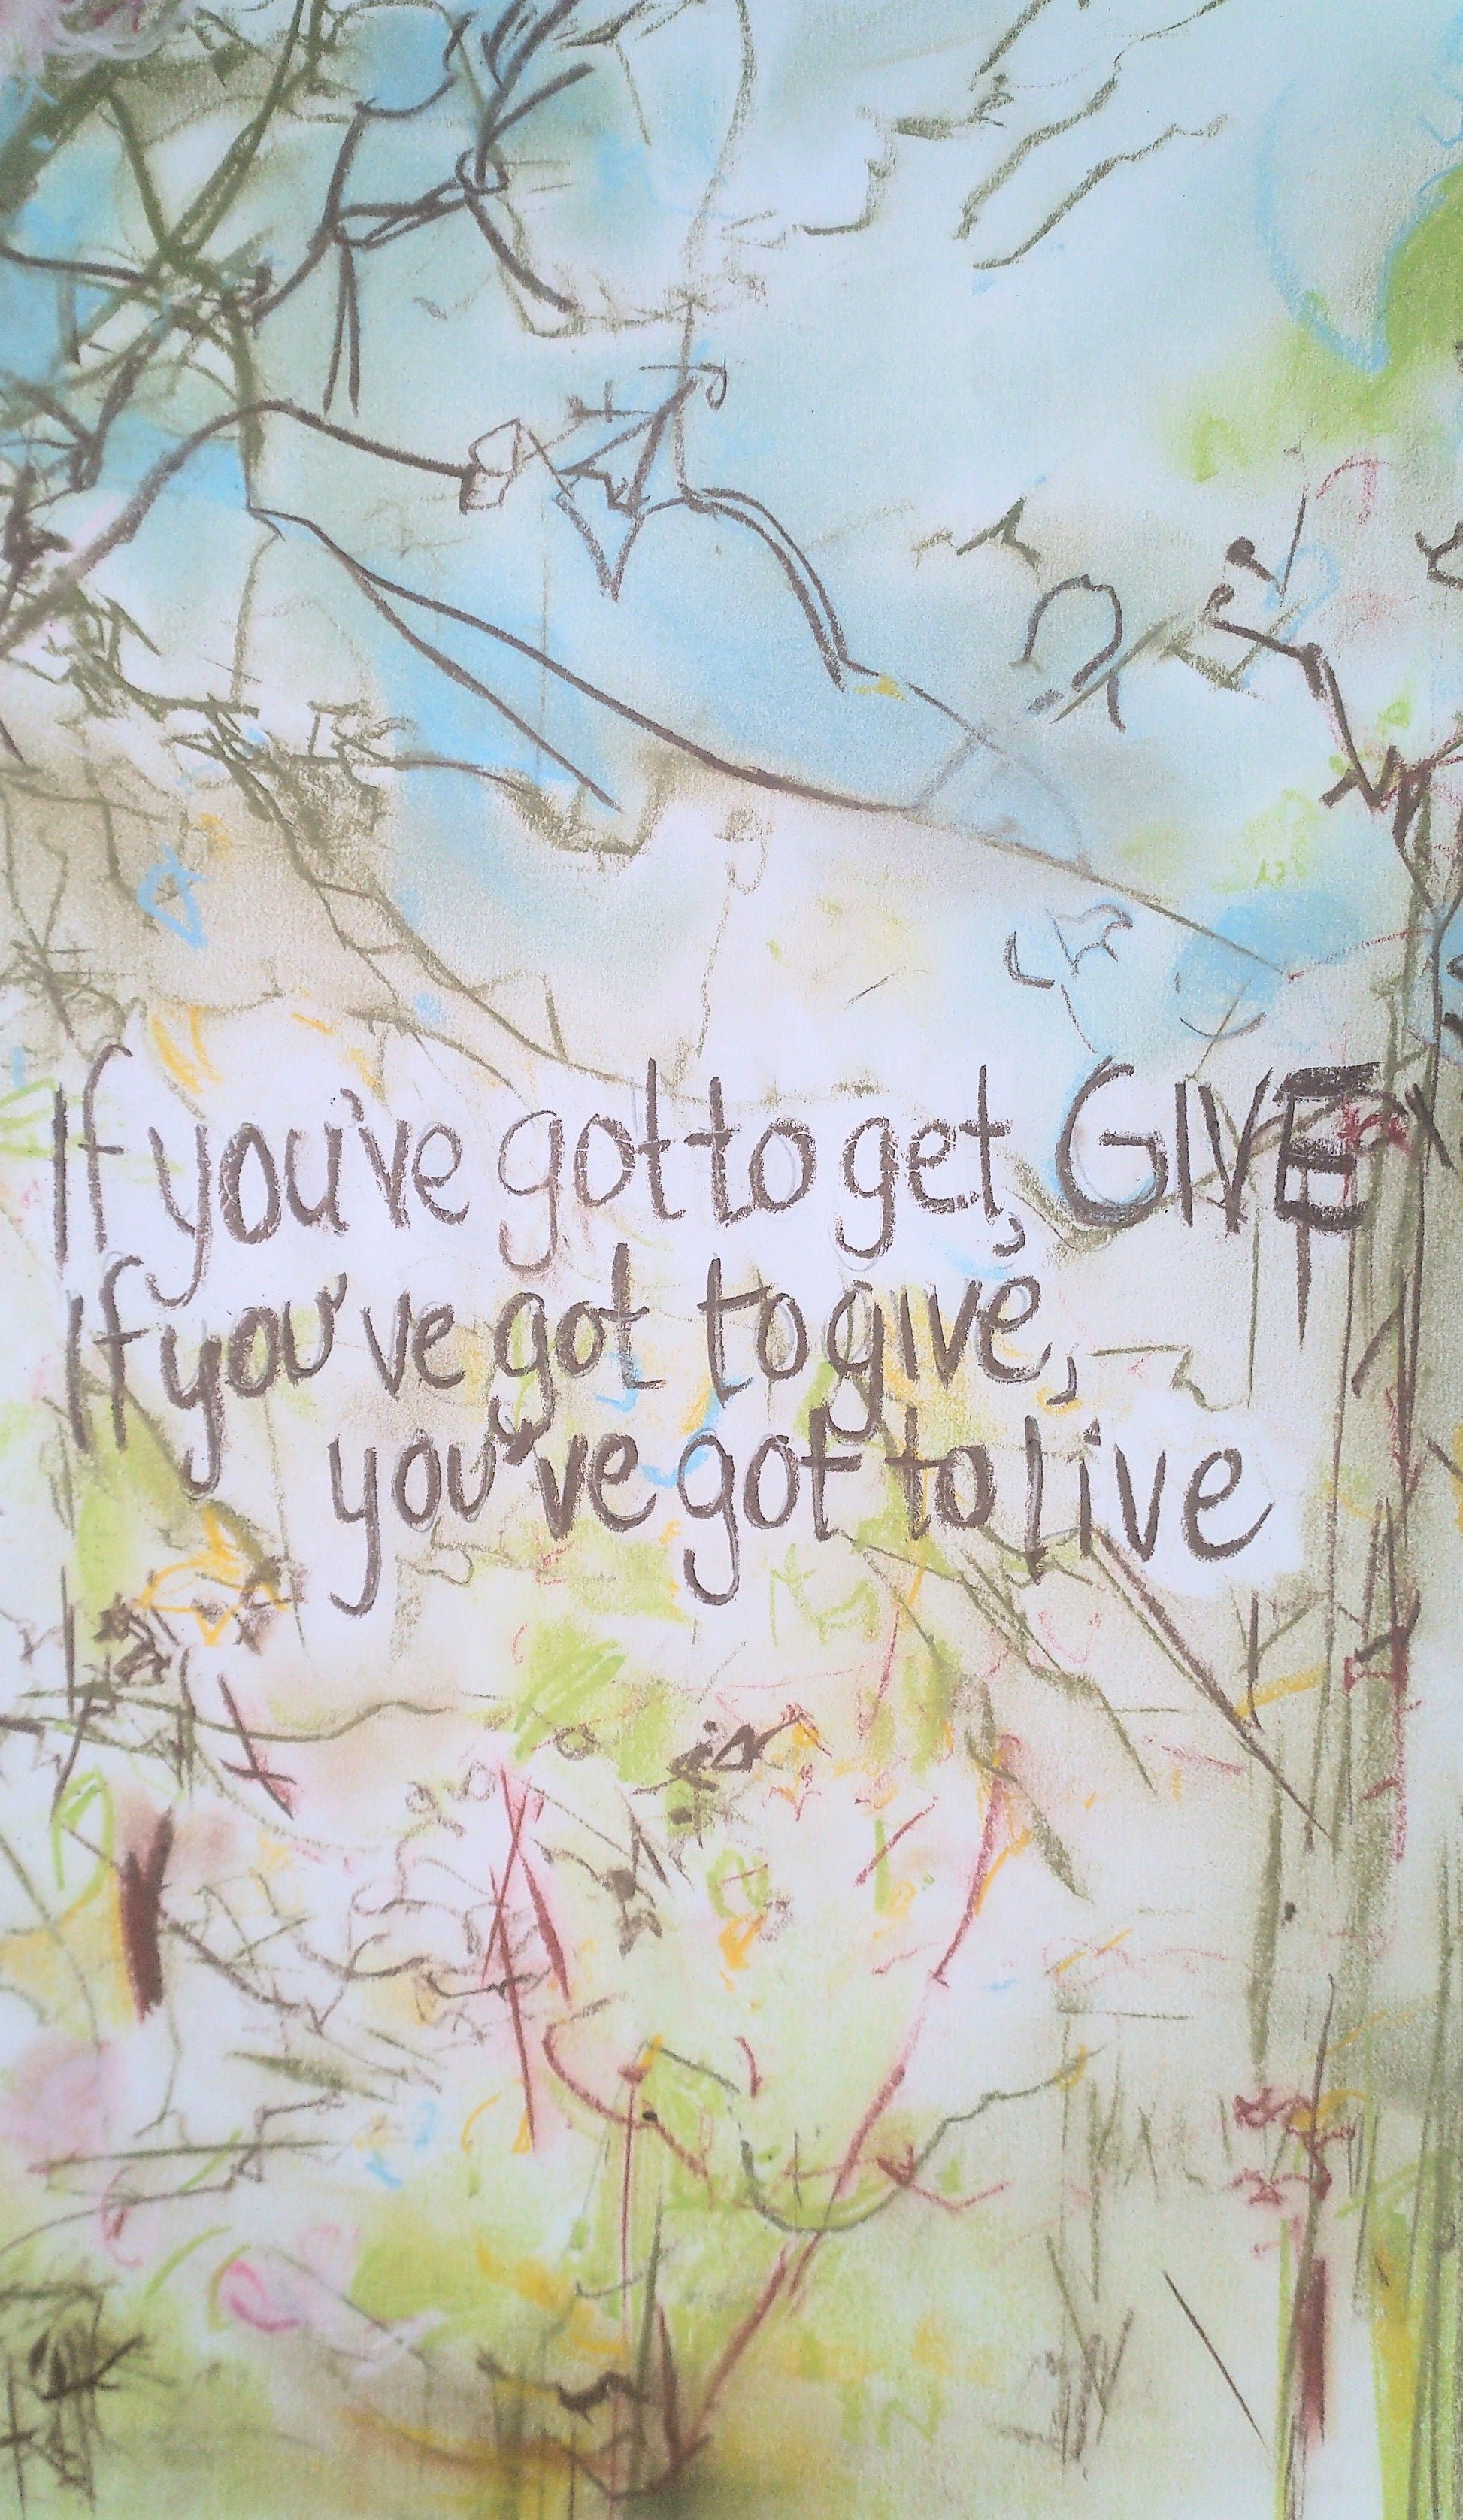 If you've got to get, GIVE
If you've got to give,
you've got to live